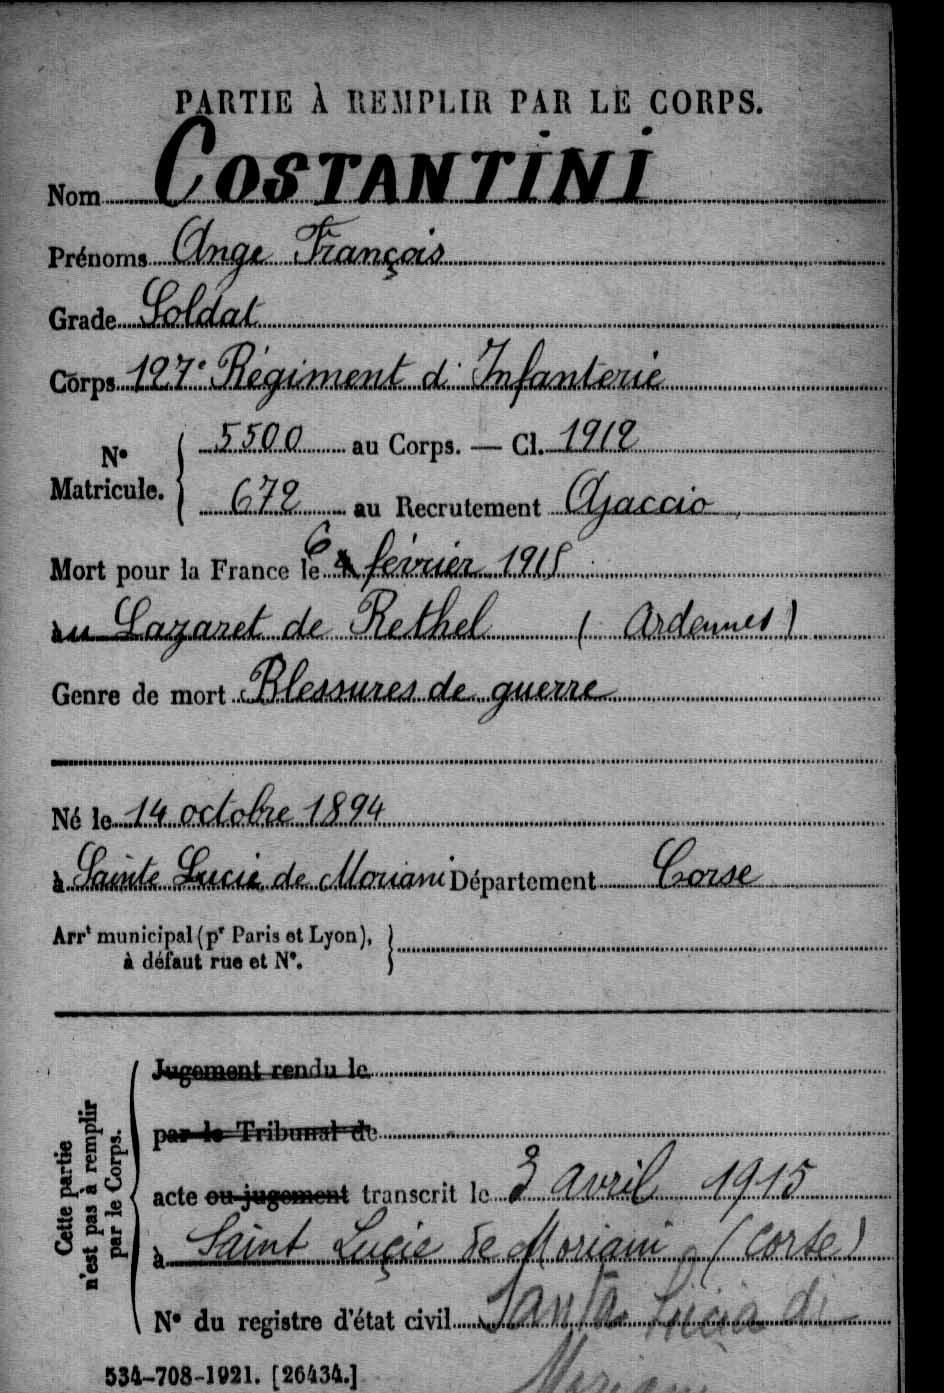 PARTIE À REMPLIR PAR LE CORPS.
Nom COSTANTINI
Prénoms Ange François
Grade Soldat
Corps 127e Régiment d'Infanterie
No Matricule. { 5500 au Corps. — Cl. 1912
672 au Recrutement Ajaccio
Mort pour la France le 6 février 1915
au Lazaret de Rethel ( Ardennes )
Genre de mort Blessures de guerre
Né le 14 octobre 1894
à Sainte Lucie de Moriani Département Corse
Arrt municipal (pr Paris et Lyon),
à défaut rue et No.
Cette partie n'est pas à remplir par le Corps.
Jugement rendu le
par le Tribunal de
acte ou jugement transcrit le 3 avril 1915
à Saint Luçie de Moriani (Corse)
No du registre d'état civil Santa Lucia di
Moriani
534-708-1921. [26434.]